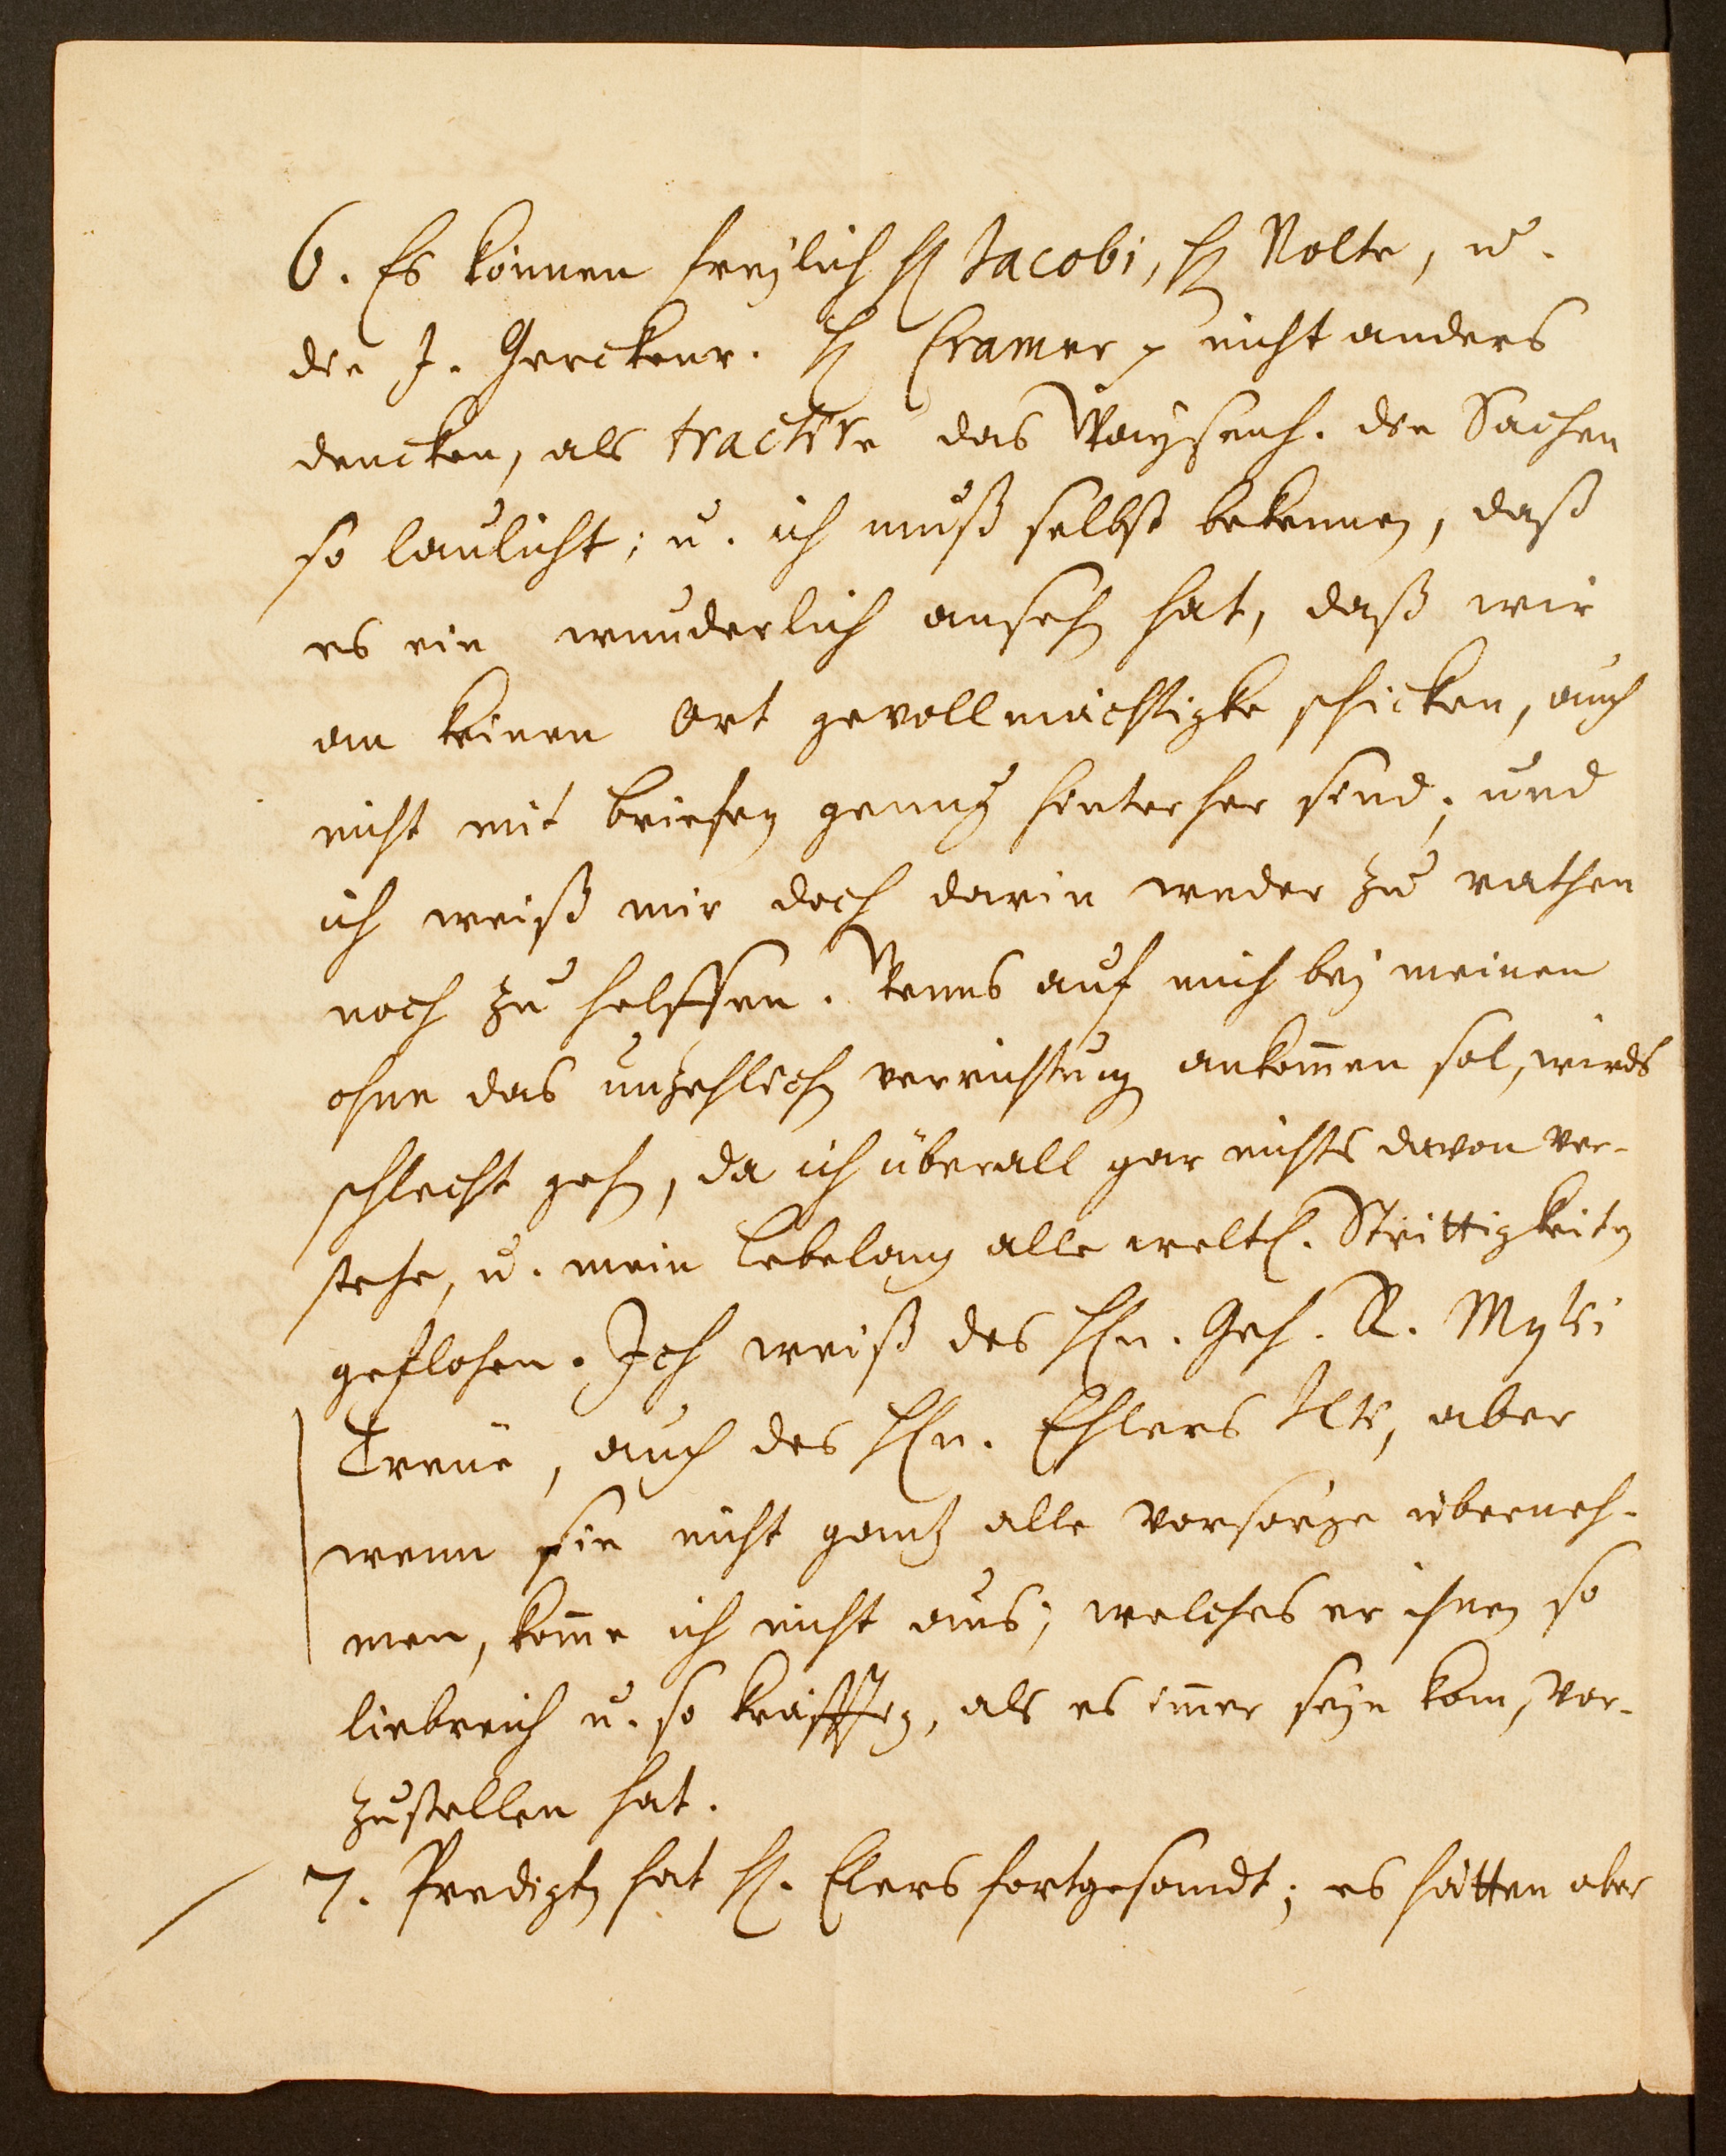 6. Es können freylich H Jacobi, H Nolte, u.
die J. Gerckenr. H Cramer p nicht anders
dencken, als tractire das Waysenh. die Sachen
so laulicht; u. ich muß selbst bekennen, daß
es ein wunderlich ansehen hat, daß wir
an keinen Ort gevollmächtigte schicken, auch
nicht mit briefen genug hinterher sind; und
ich weiß mir doch darin weder zu rathen
noch zu helffen. Wenns auf mich bey meinen
ohne das unzehlichen verrichtungen ankom̄en sol, wirds
schlecht gehen, da ich überall gar nichts davon ver-
stehe, u. mein lebelang alle weltl. Strittigkeiten
geflohen. Ich weiß des Hln. Geh. R. Mylii
Treue, auch des Hln. Ehlers, aber
wenn sie nicht gantz alle vorsorge überneh-
men, kom̄e ich nicht aus; welches er ihnen so
liebreich u. so kräfftig, als es im̄er seyn kan, vor-
zustellen hat.
7. Predigten hat H. Elers fortgesandt; es hätten aber